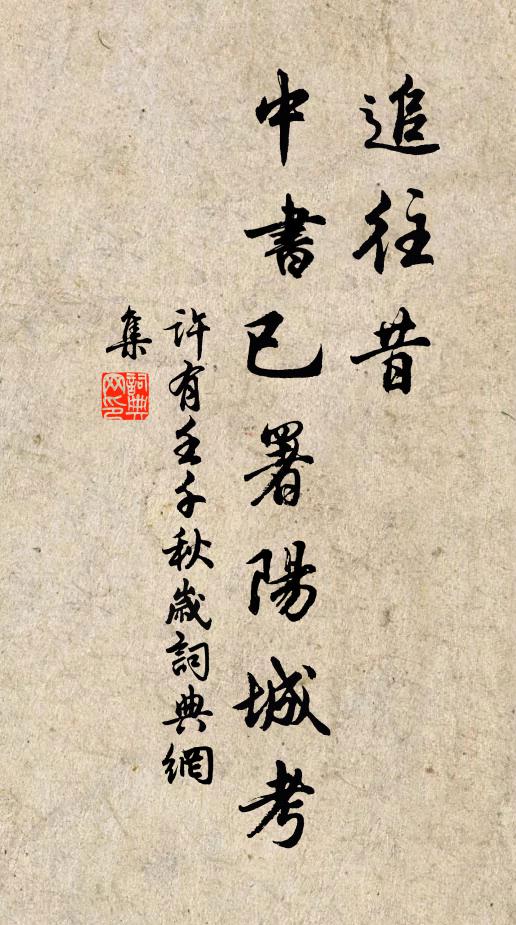 追往昔
中書已署陽城考
許有壬千秋歲詞典網
集
詞典
网印